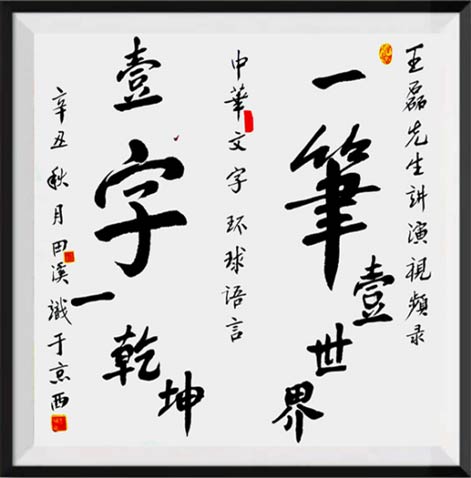 王磊先生讲演視頻录
一筆壹世界
中華文字环球语言
壹字一乾坤
辛丑秋月田溪識于京西